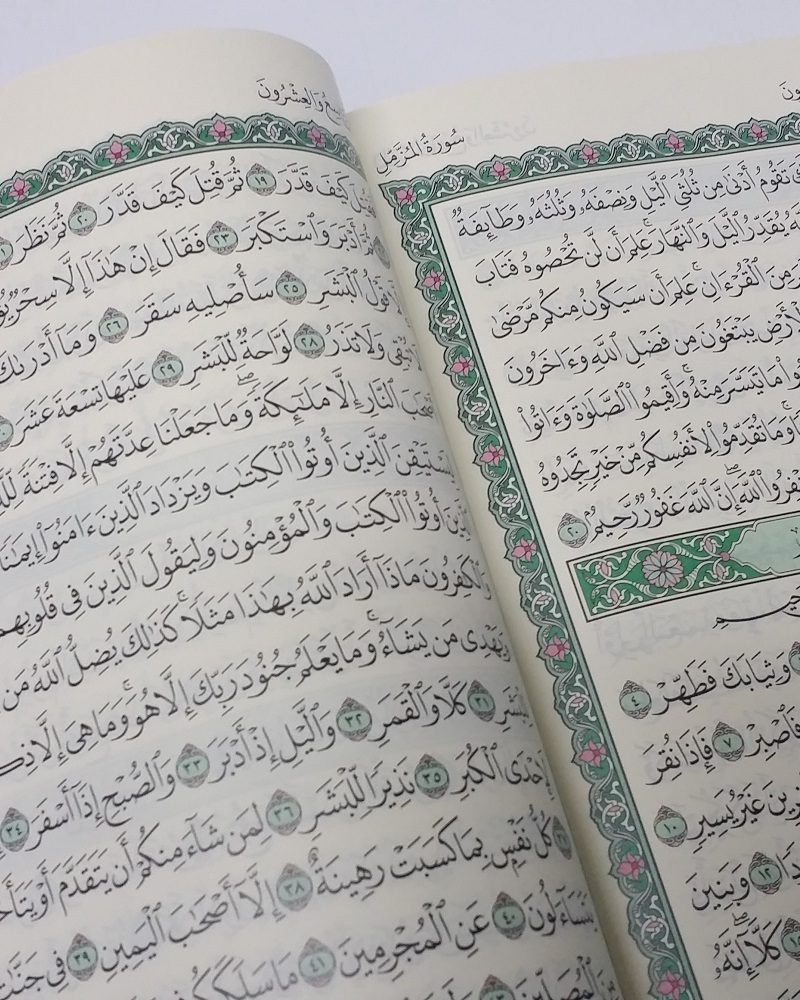 سُورَةُ المُزَّمِّل
تَقُومُ أَدْنَىٰ مِن ثُلُثَىِ ٱلَّيْلِ وَنِصْفَهُۥ وَثُلُثَهُۥ وَطَآئِفَةٌ
يُقَدِّرُ ٱلَّيْلَ وَٱلنَّهَارَ ۚ عَلِمَ أَن لَّن تُحْصُوهُ فَتَابَ
مِنَ ٱلْقُرْءَانِ ۚ عَلِمَ أَن سَيَكُونُ مِنكُم مَّرْضَىٰ
يَبْتَغُونَ مِن فَضْلِ ٱللَّهِ وَءَاخَرُونَ
مَا تَيَسَّرَ مِنْهُ ۚ وَأَقِيمُوا۟ ٱلصَّلَوٰةَ وَءَاتُوا۟
وَمَا تُقَدِّمُوا۟ لِأَنفُسِكُم مِّنْ خَيْرٍ تَجِدُوهُ
ٱللَّهَ ۖ إِنَّ ٱللَّهَ غَفُورٌ رَّحِيمٌۢ ٢٠
وَثِيَابَكَ فَطَهِّرْ ٤
فَٱصْبِرْ ٧ فَإِذَا نُقِرَ
غَيْرُ يَسِيرٍ ١٠
١٢ وَبَنِينَ
١٥ كَلَّآ ۖ إِنَّهُۥ
وَالعِشْرُونَ
كَيْفَ قَدَّرَ ١٩ ثُمَّ قُتِلَ كَيْفَ قَدَّرَ ٢٠ ثُمَّ نَظَرَ
أَدْبَرَ وَٱسْتَكْبَرَ ٢٣ فَقَالَ إِنْ هَٰذَآ إِلَّا سِحْرٌ
قَوْلُ ٱلْبَشَرِ ٢٥ سَأُصْلِيهِ سَقَرَ ٢٦ وَمَآ أَدْرَىٰكَ
وَلَا تَذَرُ ٢٨ لَوَّاحَةٌ لِّلْبَشَرِ ٢٩ عَلَيْهَا تِسْعَةَ عَشَرَ
ٱلنَّارِ إِلَّا مَلَٰٓئِكَةً ۙ وَمَا جَعَلْنَا عِدَّتَهُمْ إِلَّا فِتْنَةً
ٱلَّذِينَ أُوتُوا۟ ٱلْكِتَٰبَ وَيَزْدَادَ ٱلَّذِينَ ءَامَنُوٓا۟ إِيمَٰنًا
أُوتُوا۟ ٱلْكِتَٰبَ وَٱلْمُؤْمِنُونَ ۙ وَلِيَقُولَ ٱلَّذِينَ فِى قُلُوبِهِم
وَٱلْكَٰفِرُونَ مَاذَآ أَرَادَ ٱللَّهُ بِهَٰذَا مَثَلًا ۚ كَذَٰلِكَ يُضِلُّ ٱللَّهُ مَن
وَيَهْدِى مَن يَشَآءُ ۚ وَمَا يَعْلَمُ جُنُودَ رَبِّكَ إِلَّا هُوَ ۚ وَمَا هِىَ إِلَّا
٣١ كَلَّا وَٱلْقَمَرِ ٣٢ وَٱلَّيْلِ إِذْ أَدْبَرَ ٣٣ وَٱلصُّبْحِ إِذَآ أَسْفَرَ ٣٤
لَإِحْدَى ٱلْكُبَرِ ٣٥ نَذِيرًا لِّلْبَشَرِ ٣٦ لِمَن شَآءَ مِنكُمْ أَن يَتَقَدَّمَ أَوْ
كُلُّ نَفْسٍۭ بِمَا كَسَبَتْ رَهِينَةٌ ٣٨ إِلَّآ أَصْحَٰبَ ٱلْيَمِينِ ٣٩ فِى
يَتَسَآءَلُونَ ٤٠ عَنِ ٱلْمُجْرِمِينَ ٤١ مَا سَلَكَكُمْ
ٱلْمُصَلِّينَ